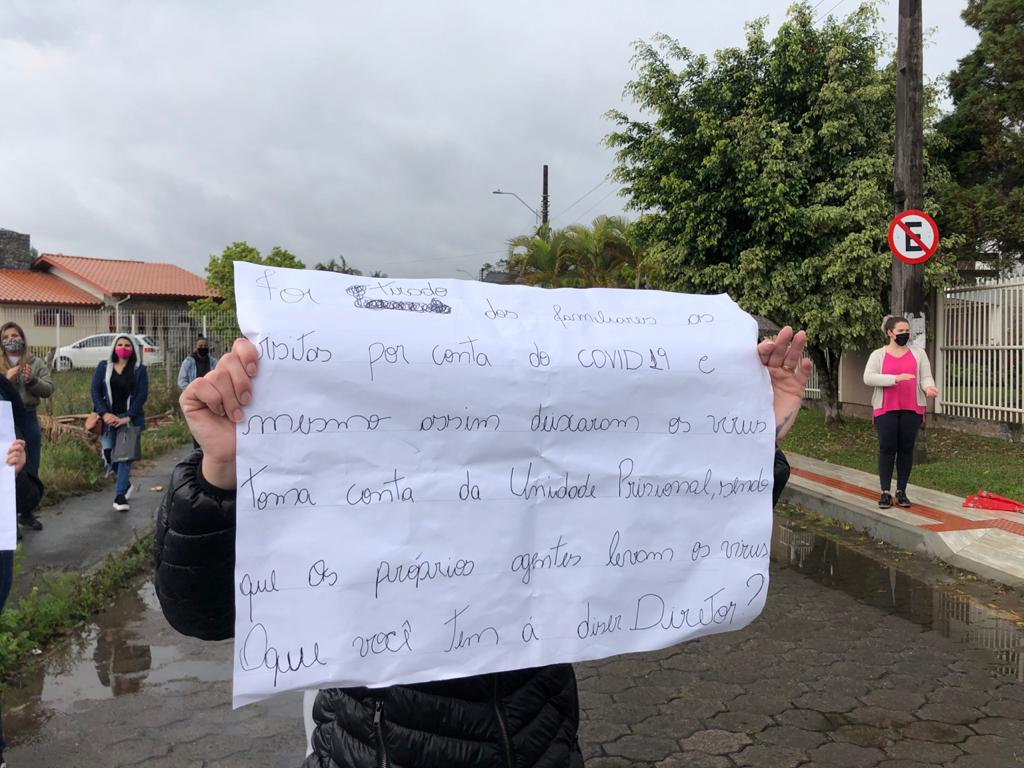 For tirado dos familiares as
visitas por conta do COVID19 e
mesmo assim deixaram os virus
toma conta da Unidade Prisional, sendo
que os próprios agentes levam os virus
Oque você tem á diser Diretor?
E